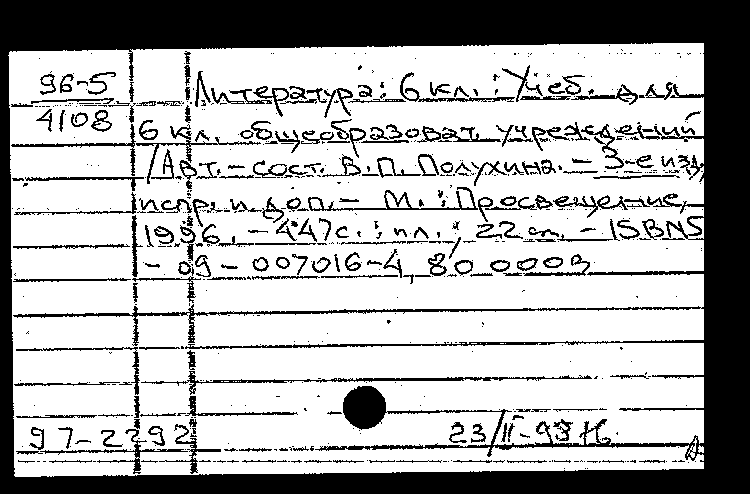 96-5 Литература: 6 кл. : Учеб. для
4108 6 кл. общеобразоват. учреждений
/Авт.-сост. В.П. Полухина. - 3-е изд,
испр. и доп. - М. : Просвещение,
1996. - 447с. : ил. ; 22 cm. - ISBN5
- 09 - 007016-4, 80 000э
97-2292 23/II-98